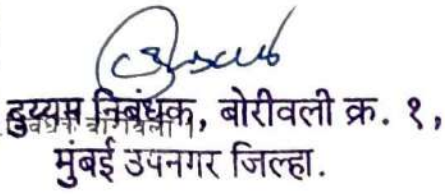 दुय्यम निबंधक, बोरीवली क्र. १,
मुंबई उपनगर जिल्हा.